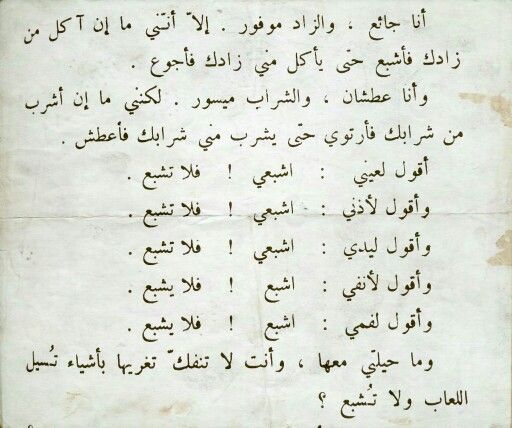 أنا جائع ، والزاد موفور . إلاّ أنّني ما إن آكل من
زادك فأشبع حتى يأكل مني زادك فأجوع .
وأنا عطشان ، والشراب ميسور . لكنني ما إن أشرب
من شرابك فأرتوي حتّى يشرب مني شرابك فأعطش .
أقول لعيني : اشبعي ! فلا تشبع .
وأقول لأذني : اشبعي ! فلا تشبع .
وأقول ليدي : اشبعي ! فلا تشبع .
وأقول لأنفي : اشبع ! فلا يشبع .
وأقول لفمي : اشبع ! فلا يشبع .
وما حيلتي معها ، وأنت لا تنفكّ تغريها بأشياء تُسيل
اللعاب ولا تُشبع ؟